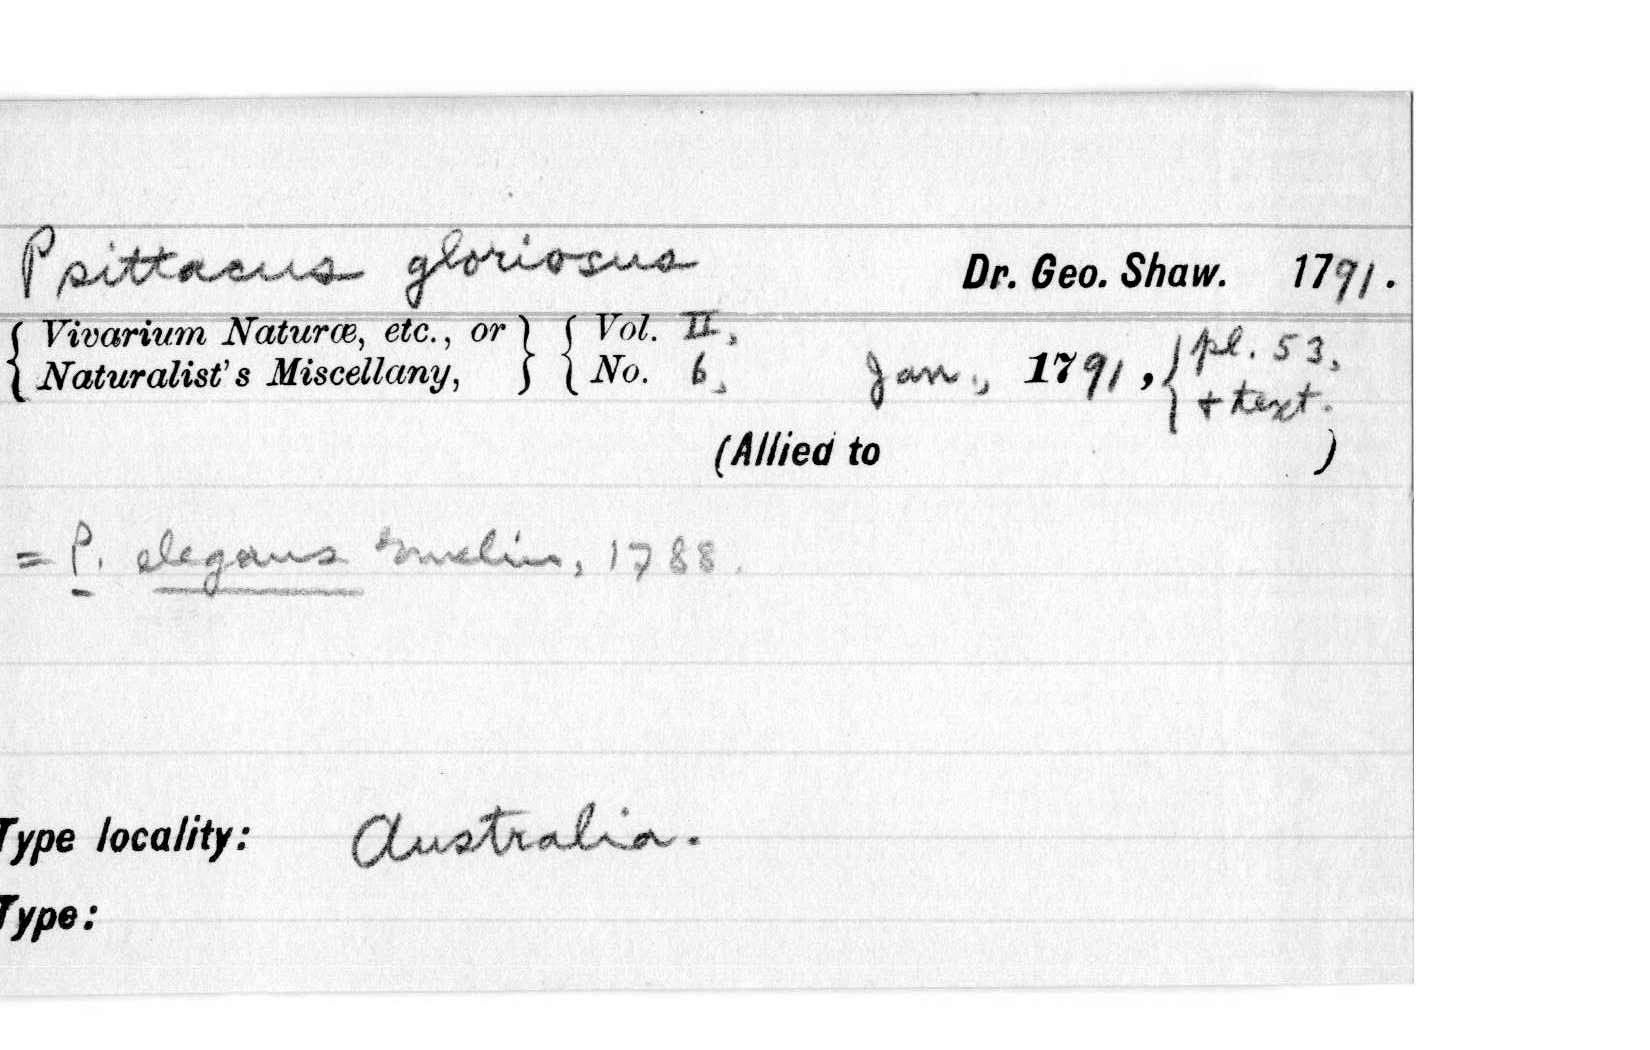 Psittacus gloriosus Dr. Geo. Shaw. 1791.
{ Vivarium Naturæ, etc., or } { Vol. II, { pl. 53,
{ Naturalist's Miscellany, } { No. 6, Jan., 1791, { + text.
(Allied to )
= P. elegans Gmelin, 1788.
Type locality: Australia.
Type: